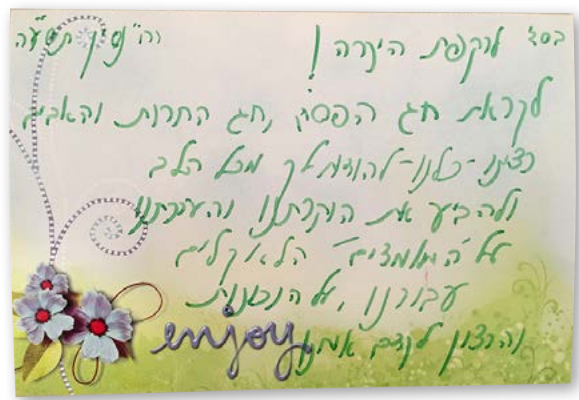 בס"ד לרקפת היקרה! ניסן תשע"ה
לקראת חג הפסח, חג החרות והאביב
רצינו-כלנו-להודות לך מכל הלב
ולהביע את הוקרתנו והערכתנו
על "המאמצים" הלא קלים
עבורנו, על הנכונות
והרצון לקדם אותנו
enjoy